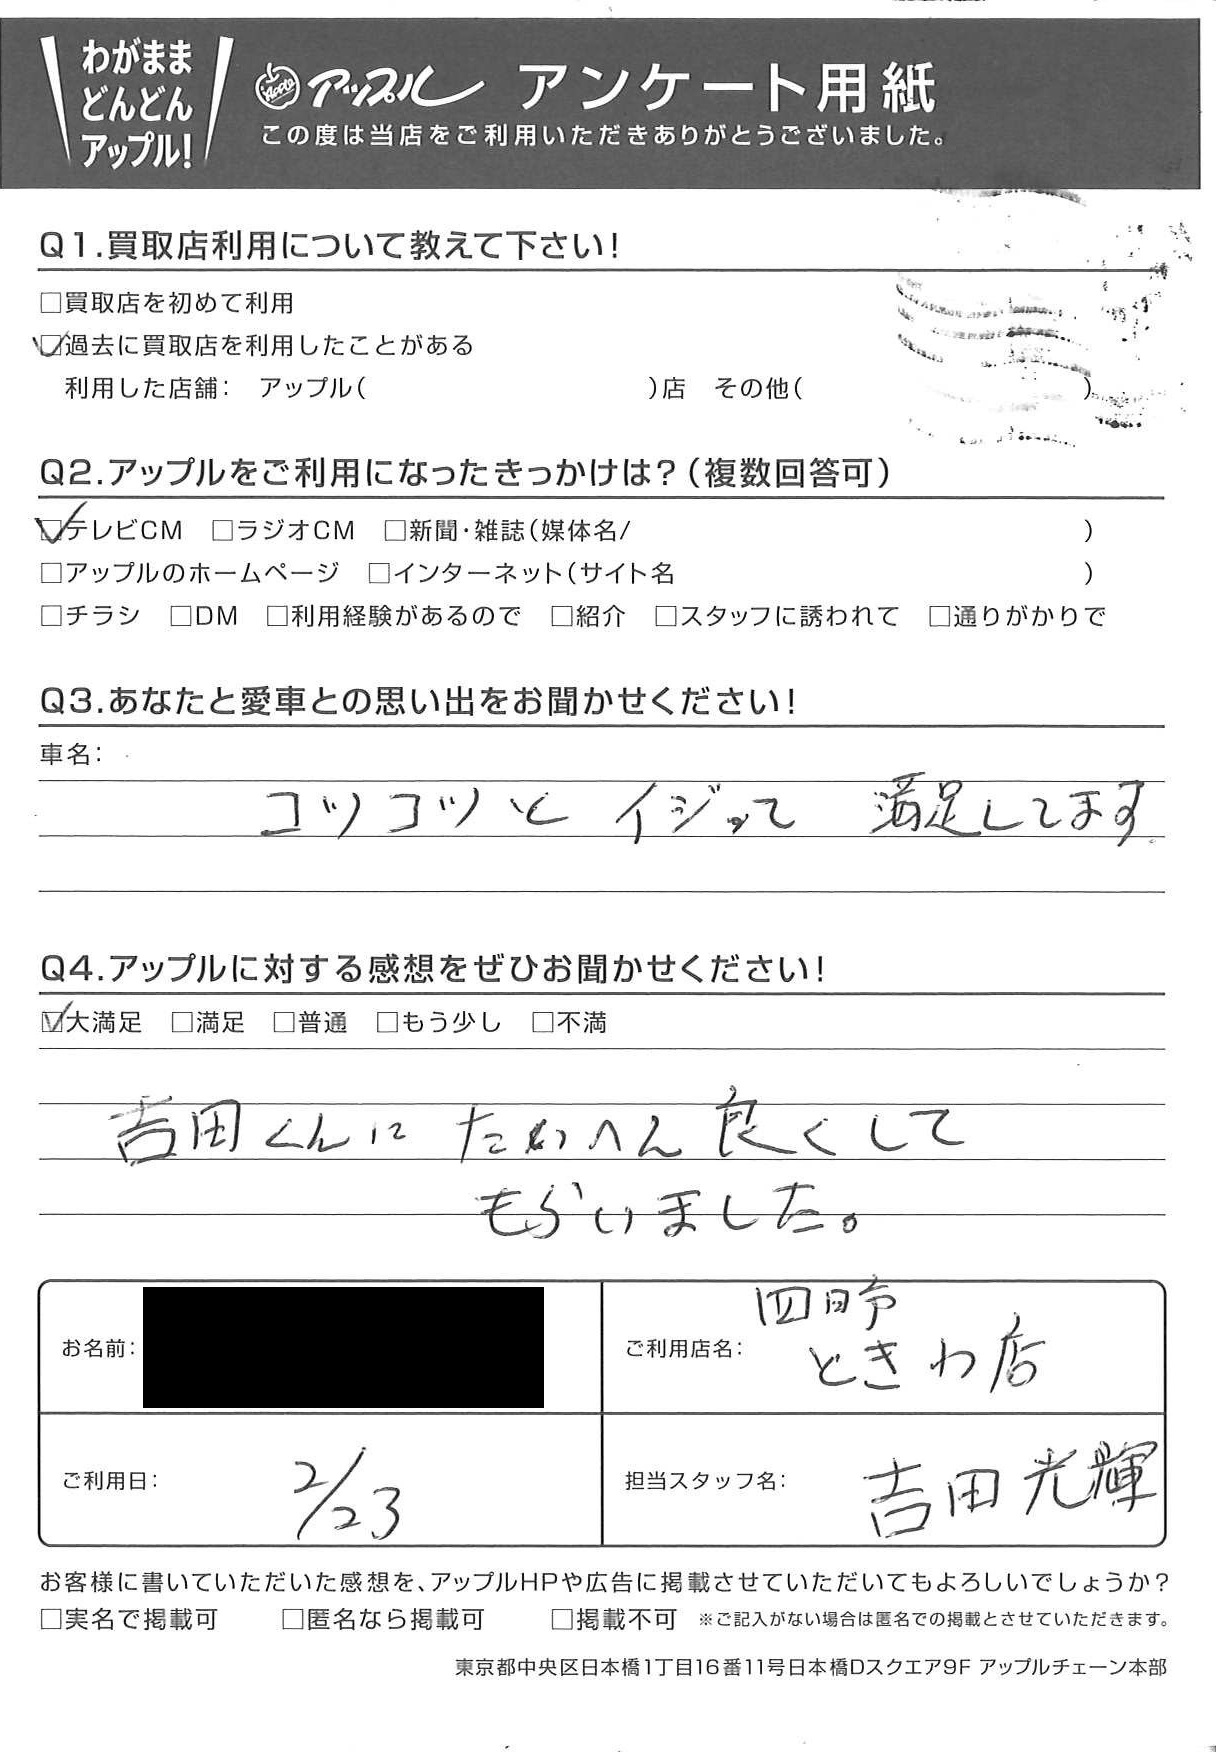 わがまま
どんどん
アップル!
Apple アップル アンケート用紙
この度は当店をご利用いただきありがとうございました。
Q1.買取店利用について教えて下さい!
□買取店を初めて利用
☑過去に買取店を利用したことがある
利用した店舗: アップル( )店 その他( )
Q2.アップルをご利用になったきっかけは?(複数回答可)
☑テレビCM □ラジオCM □新聞・雑誌(媒体名/ )
□アップルのホームページ □インターネット(サイト名 )
□チラシ □DM □利用経験があるので □紹介 □スタッフに誘われて □通りがかりで
Q3.あなたと愛車との思い出をお聞かせください!
車名:
コツコツと イジって 満足してます。
Q4.アップルに対する感想をぜひお聞かせください!
☑大満足 □満足 □普通 □もう少し □不満
吉田くんに たいへん 良くして
もらいました。
お名前:
ご利用店名: 四日市
ときわ店
ご利用日: 2/23
担当スタッフ名: 吉田光輝
お客様に書いていただいた感想を、アップルHPや広告に掲載させていただいてもよろしいでしょうか?
□実名で掲載可 □匿名なら掲載可 □掲載不可 ※ご記入がない場合は匿名での掲載とさせていただきます。
東京都中央区日本橋1丁目16番11号日本橋Dスクエア9F アップルチェーン本部